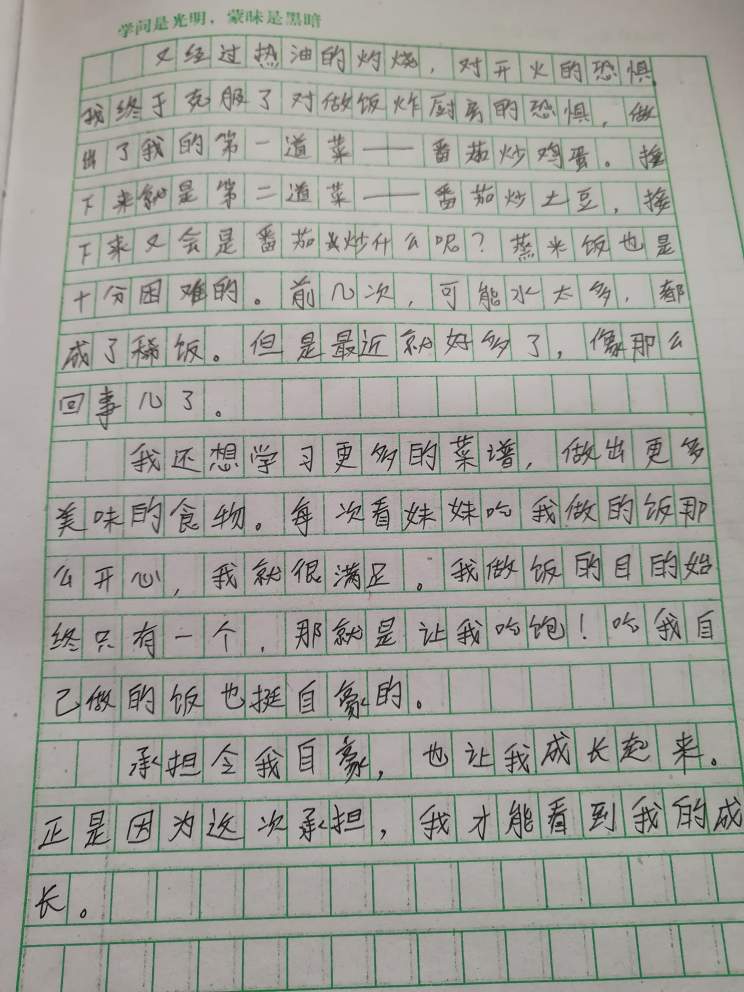 学问是光明，蒙昧是黑暗
又经过热油的灼烧，对开火的恐惧
我终于克服了对做饭炸厨房的恐惧，做
出了我的第一道菜——番茄炒鸡蛋。接
下来就是第二道菜——番茄炒土豆，接
下来又会是番茄炒什么呢？蒸米饭也是
十分困难的。前几次，可能水太多，都
成了稀饭。但是最近就好多了，像那么
回事儿了。
我还想学习更多的菜谱，做出更多
美味的食物。每次看妹妹吃我做的饭那
么开心，我就很满足。我做饭的目的始
终只有一个，那就是让我吃饱！吃我自
己做的饭也挺自豪的。
承担令我自豪，也让我成长起来。
正是因为这次承担，我才能看到我的成
长。